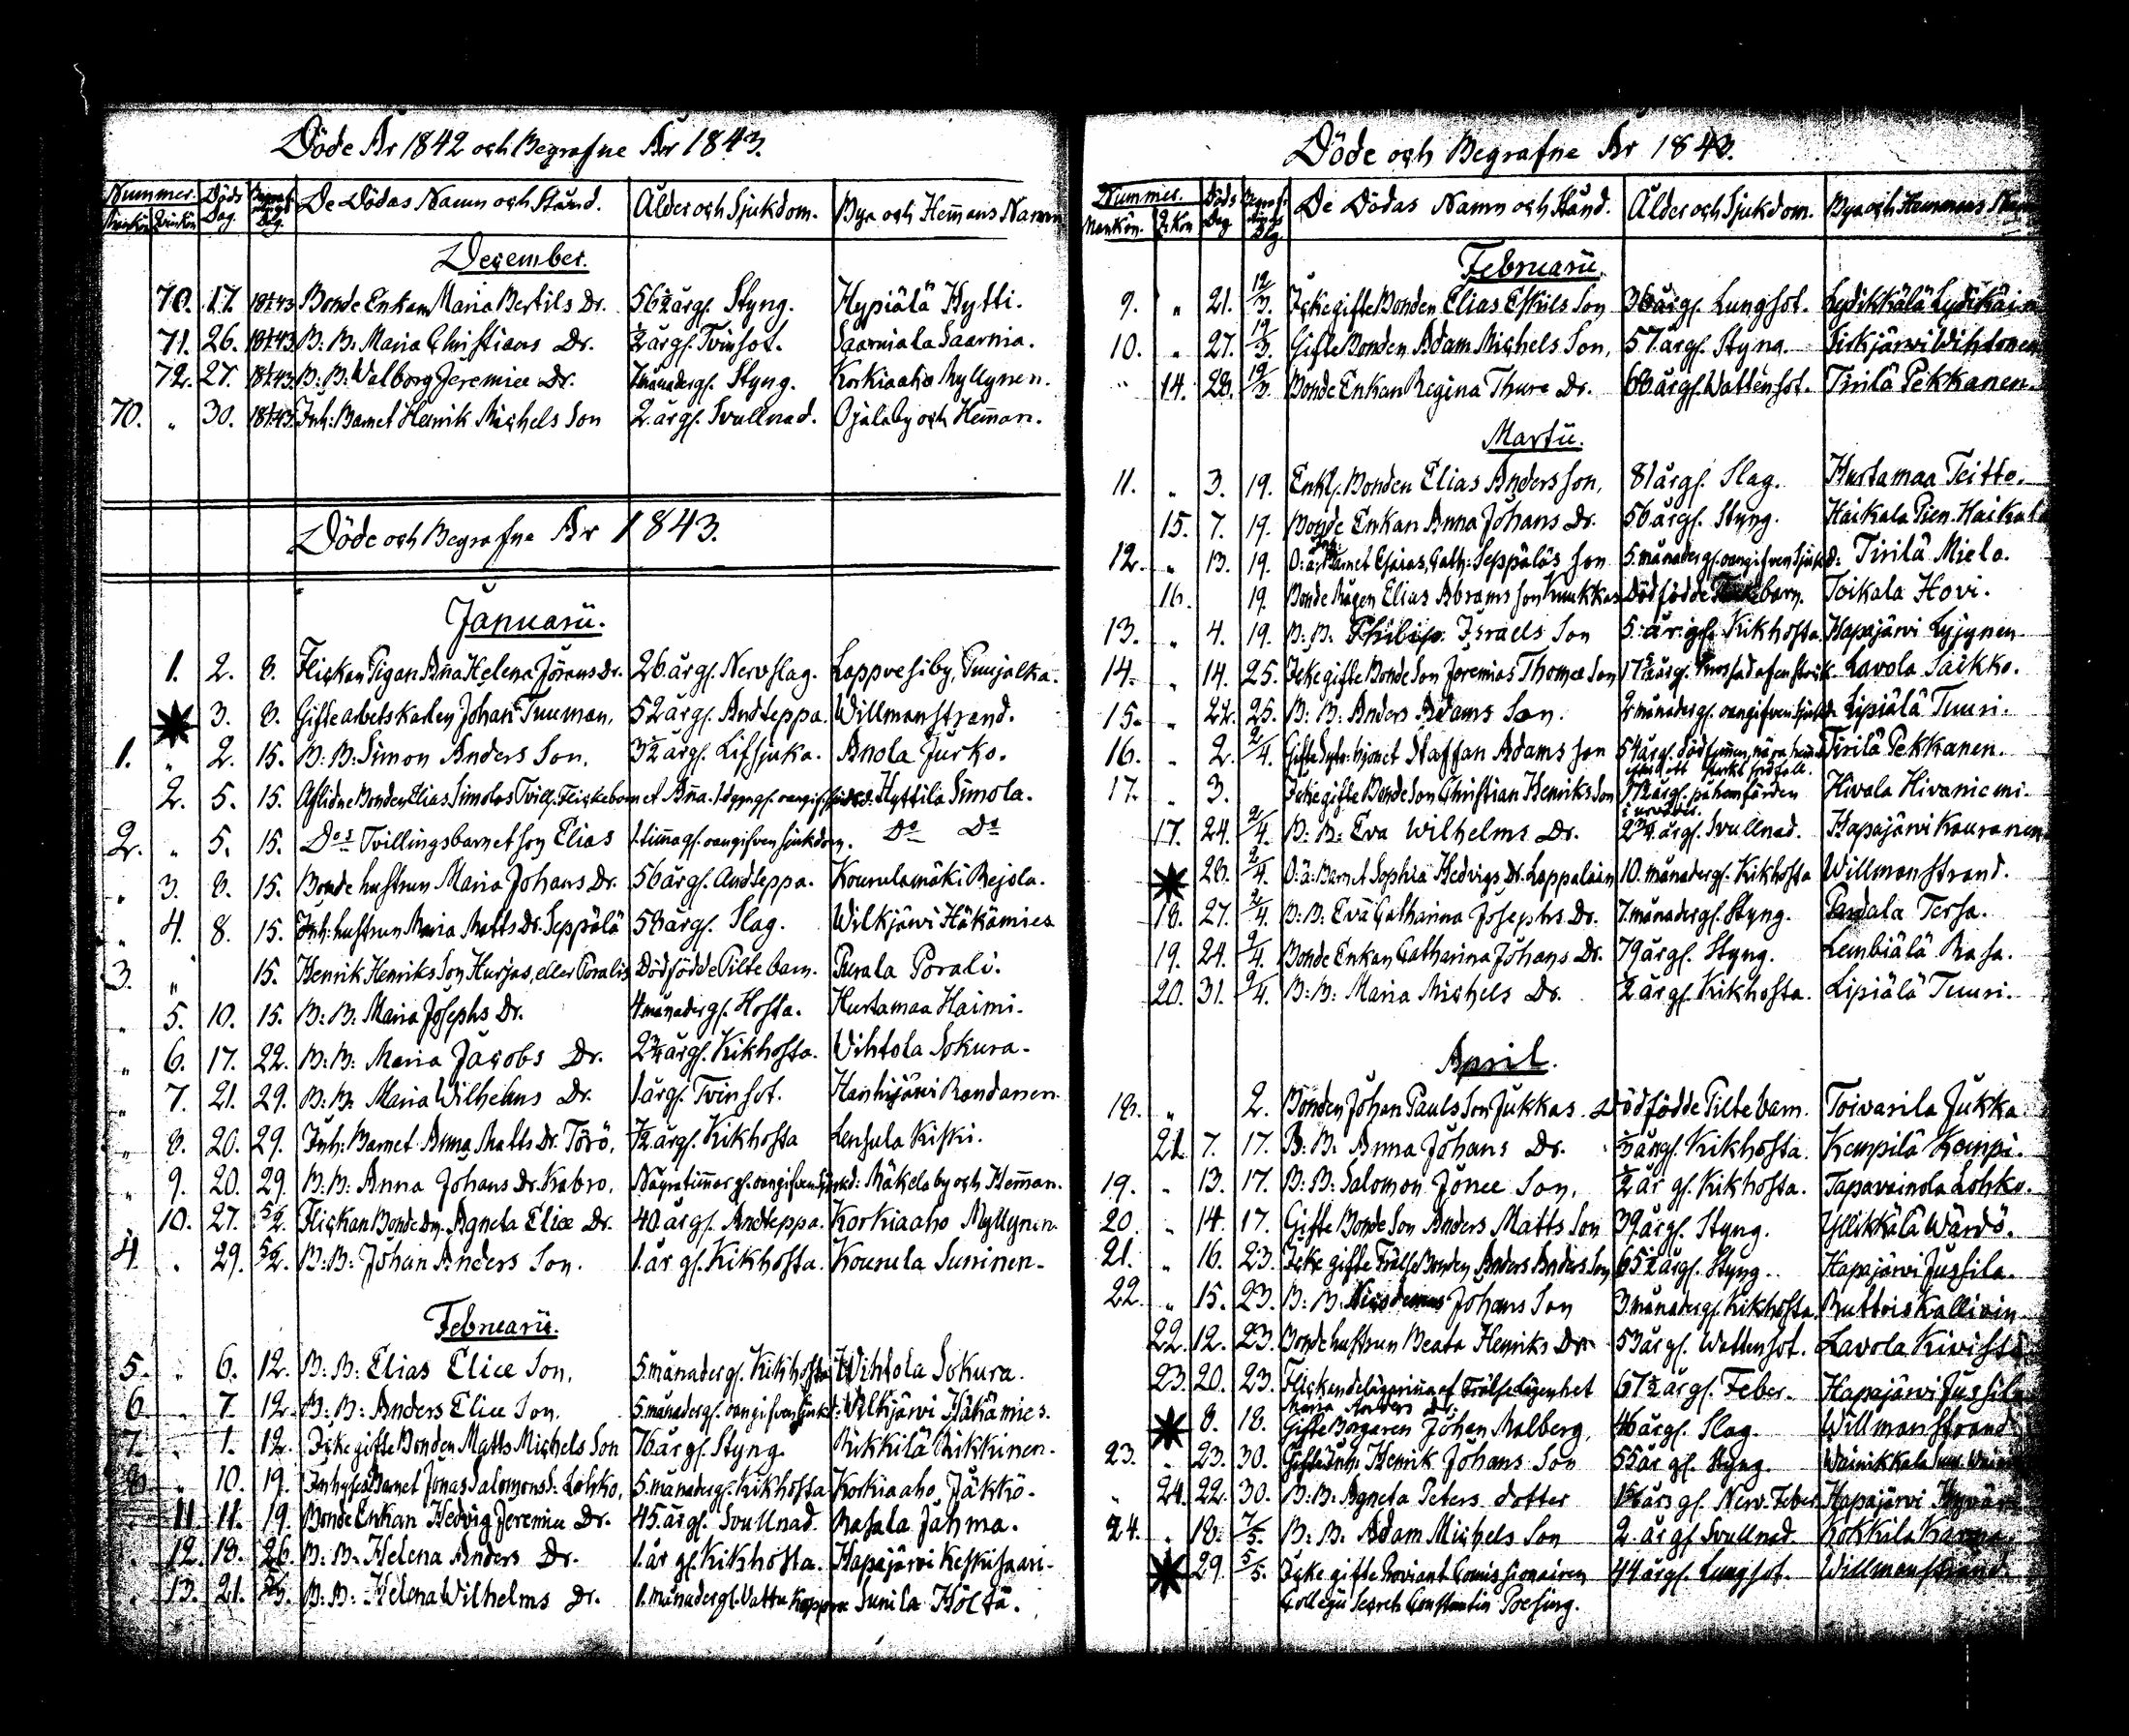 Döde År 1842 och Begrafne År 1843.
Nummer. Döds Dag. Begrafnings Dag. De Dödas Namn och Stånd. Ålder och Sjukdom. Bya och Hem̄ans Namn
December.
70. 17. 18/1 43 Bonde Enkan Maria Bertils Dr. 56½ årgl. Styng. Hypiälä Hytti.
71. 26. 18/1 43. B: B: Maria Christians Dr. ½ årgl. Tvinsot. Saarniala Saarnia.
72. 27. 18/1 43. B: B: Walborg Jeremiæ Dr. 7 månadergl. Styng. Korkiaaho Myllynen.
70. „ 30. 18/1 43. Inh: Barnet Henrik Michels Son 2. årgl. Svullnad. Ojala by och Hem̄an.
Döde och Begrafne År 1843.
Januarii.
1. 2. 8. Flickan Pigan An̄a Helena Jörans dr. 26 årgl. Nervslag. Lappvesi by, Puujalka.
3. 8. Gifte arbetskarlen Johan Tuuman, 52 årgl. Andteppa. Willmanstrand.
1. „ 2. 15. B: B: Simon Anders Son. 3½ årgl. Lifsjuka. Anola Jurko.
2. 5. 15. Aflidne Bonden Elias Simolas Tvill. Flickebarnet An̄a. 1 dygngl. oangifven sjukd. Hyttilä Simola.
2. „ 5. 15. Dos Tvillingsbarnet Son Elias 1. tim̄agl. oangifven sjukdom. Do Do
„ 3. 8. 15. Bonde hustrun Maria Johans Dr. 56 årgl. Andteppa. Kourulamäki Rejola.
„ 4. 8. 15. Inh: hustrun Maria Matts Dr. Seppälä 58 årgl. Slag. Wilkjärwi Häkämies
3. „ 15. Henrik Henriks Son Hurjas, eller Poralis Dödfödde Pilte barn. Purala Porali.
„ 5. 10. 15. B: B: Maria Josephs Dr. 4 månader gl. Hosta. Hurtamaa Haimi.
„ 6. 17. 22. B: B: Maria Jacobs Dr. 2¾ årgl. Kikhosta. Wihtola Sokura.
„ 7. 21. 29. B: B: Maria Wilhelms Dr. 1 årgl. Tvinsot. Hanhijärwi Randanen.
„ 8. 20. 29. Inh: Barnet Anna Matts Dr. Törö, ½ årgl. Kikhosta Lensula Kiski.
„ 9. 20. 29. B: B: Anna Johans Dr. Kabro, Några tim̄ar gl. oangifven sjukd: Mäkela by och Hem̄an.
10. 27. 5/2. Flickan Bonde Dn. Agneta Eliæ Dr. 40 årgl. Andteppa. Korkiaaho Myllynen.
4 . 29. 5/2. B: B: Johan Anders Son. 1. år gl. Kikhosta. Kourula Suninen.
Februarii.
5. „ 6. 12. B: B: Elias Eliæ Son, 5. månadergl. Kikhosta Wihtola Sokura.
6. „ 7. 12. B: B: Anders Eliæ Son. 5. månadergl. oangifven sjukd: Wilkjärwi Häkämies.
7. „ 1. 12. Icke gifte Bonden Matts Michels Son 76 årgl. Styng. Rikkilä Rikkinen.
8. „ 10. 19. Inhyses Barnet Jonas Salomons d. Lohko, 5. månadergl. Kikhosta Korkiaaho Jäkkö.
11. 11. 19. Bonde Enkan Hedvig Jeremiæ Dr. 45. årgl. Svullnad. Rasala Jahma.
12. 18. 26. B: B: Helena Anders Dr. 1. år gl. Kikhosta. Hapajärvi Keskisaari.
13. 21. B: B: Helena Wilhelms Dr. 1. månadergl. Vattu koppor. Sunila Hölttä.
Döde och Begrafne År 1843.
Nummer. Mankön. Q. Kön Döds Dag Begrafnings Dag De Dödas Namn och Stånd. Ålder och Sjukdom. Bya och Hemmans Namn
Februarii.
9. „ 21. 12/3. Icke gifte Bonden Elias Eskils Son 36 årgl. Lungsot. Lydikkälä Lydikäin
10. „ 27. 19/3. Gifte Bonden Adam Michels Son, 57. årgl. Styng. Sirkjärwi Wihtonen
„ 14. 28. 19/3. Bonde Enkan Regina Thure Dr. 66 årgl. Wattensot. Tirilä Pekkanen.
Martii.
11. „ 3. 19. Enkl. Bonden Elias Anders son, 81 årgl. Slag. Hurtamaa Teitto.
15. 7. 19. Bonde Enkan Anna Johans Dr. 56 årgl. Styng. Haikala Pien. Haikala
12. „ 13. 19. O: ä: Inh: Barnet Esaias, Cath: Seppäläs Son 5. månadergl. oangifven sjukd: Tirilä Miela.
16. 19. Bonde Mågen Elias Abrams son Kuukkas Dödfödde barn. Toikala Hovi.
13. „ 4. 19. B: B: Philip Israels Son 5. år. gl. Kikhosta. Hapajärvi Lyjynen.
14. „ 14. 25. Icke gifte Bonde Son Jeremias Thomæ Son 17½ årgl. Krossad af en stock. Lavola Saikko.
15. „ 22. 25. B: B: Anders Adams Son. 2 månadergl. oangifven sjukd. Lipiälä Tuuri.
16. „ 2. 2/4. Gifte Staffan Adams Son 54 årgl. död fun̄en, nära hem̄et efter ett starkt snöfall. Tirilä Pekkanen.
17. „ 3. Icke gifte Bonde Son Christian Henriks Son 17½ årgl. på hemfärden i urväder. Hivala Hivaniemi.
17. 24. 2/4. B: B: Eva Wilhelms Dr. 2¾ årgl. Svullnad. Hapajärvi Kouranen.
28. 2/4. O: ä: Barnet Sophia Hedvigs Dr. Lappalain 10. månadergl. Kikhosta Willmanstrand.
18. 27. 2/4. B: B: Eva Catharina Josephs Dr. 7. månadergl. Styng. Pandala Tersa.
19. 24. 2/4. Bonde Enkan Catharina Johans Dr. 79 årgl. Styng. Lembiälä Rasa.
20. 31. 2/4. B: B: Maria Michels Dr. ½ årgl. Kikhosta. Lipiälä Tuuri.
April.
18. „ 2. Bonden Johan Pauls Son Jukkas Dödfödde Pilte barn. Toivarila Jukka
21 7. 17. B: B: Anna Johans Dr. årgl. Kikhosta. Kempilä Kempi.
19. „ 13. 17. B: B: Salomon Jonæ Son. ½ år gl. Kikhosta. Tapavainola Lohko.
20 „ 14. 17. Gifte Bonde Son Anders Matts Son 39. årgl. Styng. Yllikkälä Wärdö.
21. „ 16. 23. Icke gifte Frälse Bonden Anders Anders Son 65½ årgl. Styng. Hapajärvi Jussila.
22. „ 15. 23. B: B: Nicodemus Johans Son 3. månadergl. Kikhosta. Ruttois Kallioin
22. 12. 23. Bonde hustrun Beata Henriks Dr 53 årgl. Wattensot. Lavola Kivistö
23. 20. 23. Flickan delägarin̄a af Frälse Lägenhet Maria Anders Dr. 67½ årgl. Feber. Hapajärvi Jussila
8. 18. Gifte Borgaren Johan Malberg, 46 årgl. Slag. Willmanstrand
23. „ 23. 30. Gifte Inh: Henrik Johans Son 55 år gl. Styng. Wainikkala
„ 24. 22. 30. B: B: Agneta Peters dotter års gl. Nerv. Feber Hapajärvi
24. „ 18. 7/5. B: B: Adam Michels Son 2. år gl Svullnad. Kokkila Karma
29. 5/5. Icke gifte Proviant Com̄issionairen Collegii Secret: Constantin Poesing. 44 årgl. Lungsot. Willmanstrand.